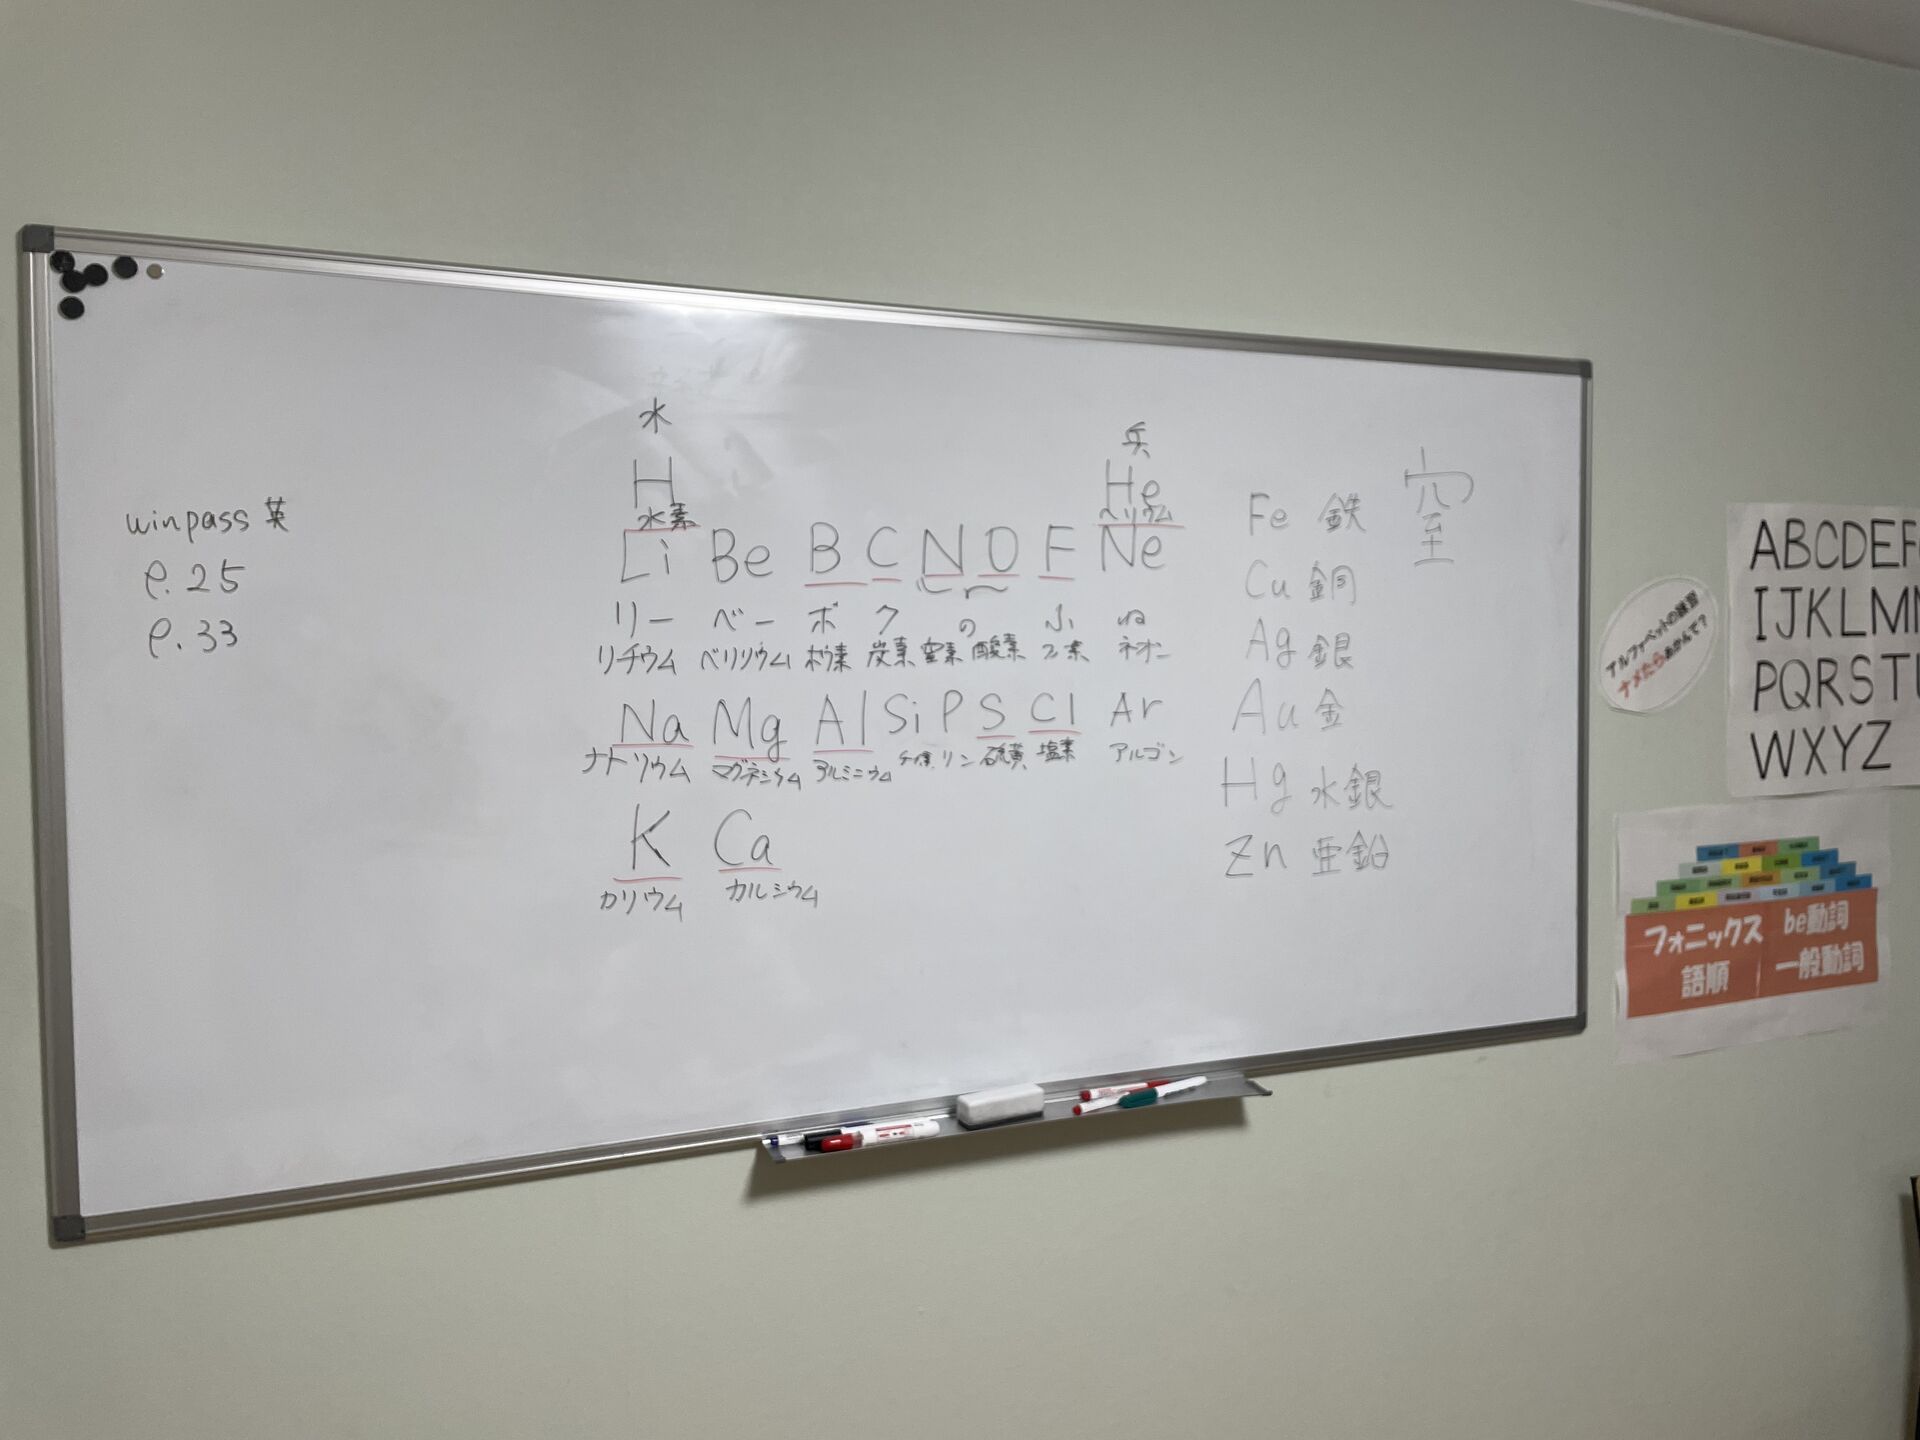 winpass 英
P.25
P.33
水
兵
H
He
水素
ヘリウム
Li Be B C N O F Ne
リー ベー ボ ク の ふ ね
リチウム ベリリウム ホウ素 炭素 窒素 酸素 フッ素 ネオン
Na Mg Al Si P S Cl Ar
ナトリウム マグネシウム アルミニウム ケイ素 リン 硫黄 塩素 アルゴン
K Ca
カリウム カルシウム
Fe 鉄
Cu 銅
Ag 銀
Au 金
Hg 水銀
Zn 亜鉛
アルファベットの練習
ナメたらあかんで?
ABCDEF
IJKLM
PQRSTU
WXYZ
フォニックス be動詞
語順 一般動詞